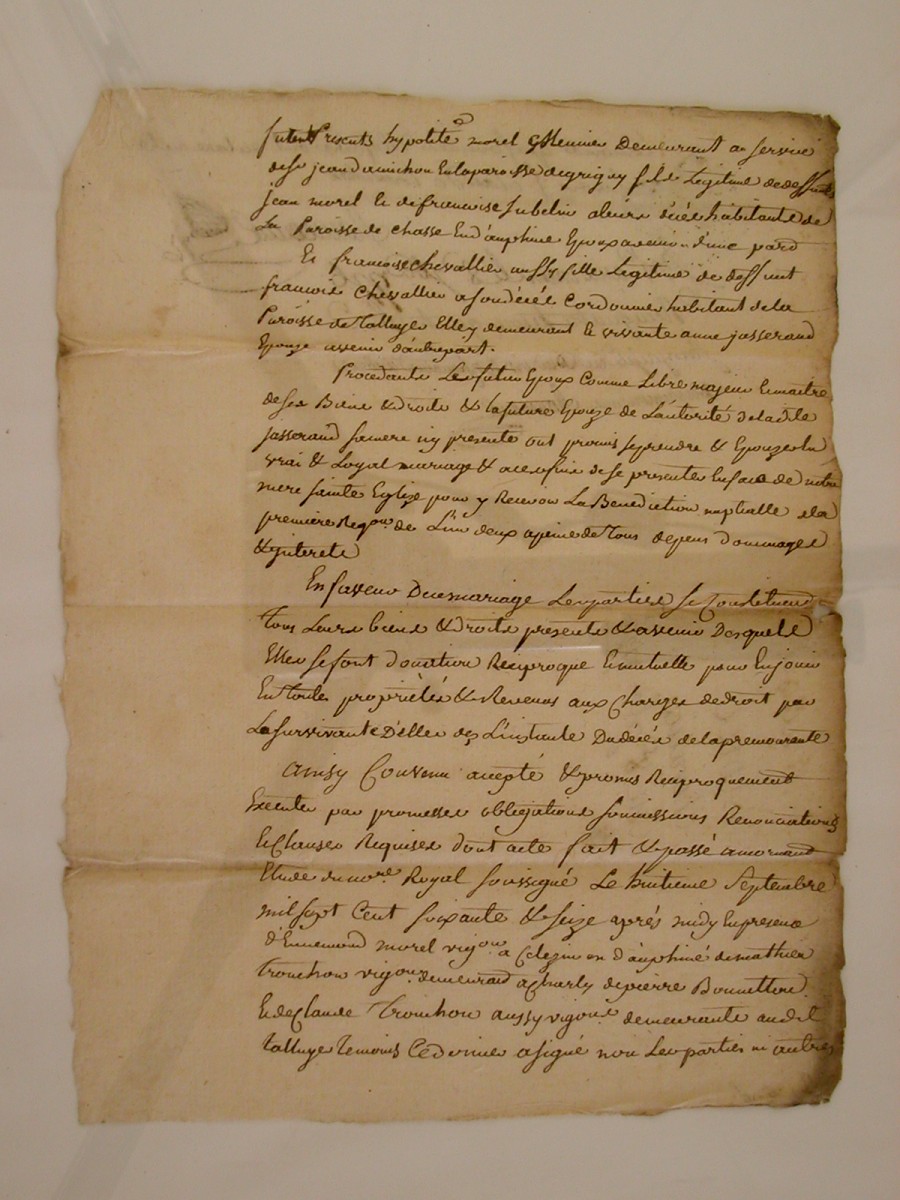 furent Presents hypolite morel grenier Demeurant au service
de sr jean dominchon en la paroisse de grigny fils Legitime de deffunt
jean morel & de francoise jubelin a leurs décés habitants de
La Paroisse de Chasse En d'auphine Epoux avenir d'une pard
Et francoise Chevallier aussy fille Legitime de deffunt
francois Chevallier a son decés Cordonnier habitant de la
Paroisse de Talluye Elle y demeurant & vivante anne jasserand
Epouze avenir d'autre part.
Procedants Le futur Epoux Comme Libre majeur & maitre
de ses Biens & droits & la future Epouze de L'autorité de ladite
jasserand sa mere icy presente ont promis se prendre & Epouzer en
vrai & Loyal mariage & a ces fins de se presenter En face de notre
mere sainte Eglize pour y Recevoir La Benediction nuptialle a la
premiere Reqon. de L'un deux a peine de Tous depens Dommages
& interets
En faveur Du mariage Les parties se Constituent
Tous Leurs biens & droits presents & avenir Desquels
Elles se font donation Reciproque & mutuelle pour En jouir
En toutes propriétés & Revenus aux Charges de droit par
La survivante D'elles dez L'instant Du décés de la premourante
ainsy Convenu accepté & promis Reciproquement
Executer par promesses obligations soumissions Renonciations
& Clauses Requises dont acte fait & passé a mornant
Etude du nore. Royal soussigné Le huitieme Septembre
mil sept Cent soixante & seize aprés midy En presence
d'Ennemond morel vigon. a en d'auphiné de mathieu
Tronchon vigon. demeurand a Charly de pierre Bonnettond
& de Claude Tronchon aussy vigons. demeurants audit
talluye temoins Ce dernier a signé non Les parties ni autres